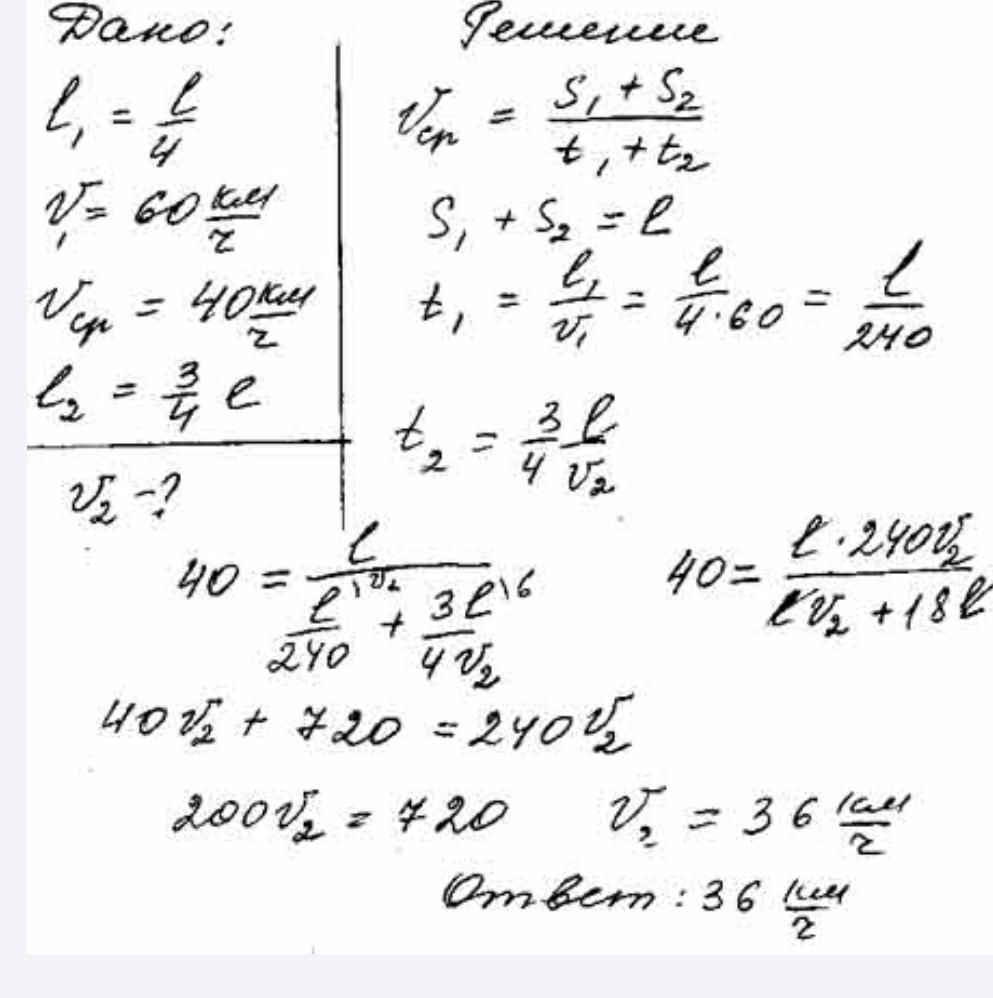 Дано:
l₁ = l/4
v₁ = 60 км/ч
vср = 40 км/ч
l₂ = 3/4 l
v₂ - ?
Решение
vср = (S₁ + S₂)/(t₁ + t₂)
S₁ + S₂ = l
t₁ = l₁/v₁ = l/(4·60) = l/240
t₂ = 3/4 l/v₂
40 = l/(l/240 \v₂ + 3l/(4v₂) \6)
40 = (l·240v₂)/(lv₂ + 18l)
40v₂ + 720 = 240v₂
200v₂ = 720 v₂ = 36 км/ч
Ответ: 36 км/ч